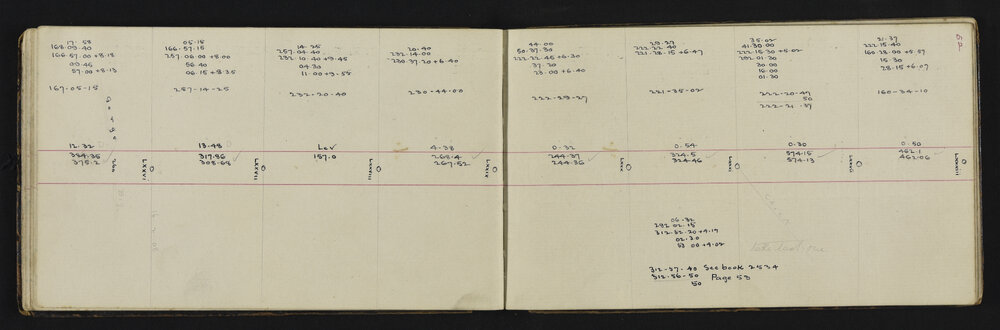 17. 58
168.09.40
166.57.00+8.18
09.46
57.00+8.13
167-05-15
12.32
384.35
375.2
05-15
166.57.15
257 06 00+8.00
56 40
06.15+8.35
257-14-25
13.48
317.86
308.68
LXXVI
14-25
257.04.40
232.10.40+9.45
04.30
11.00+9.58
232-20-40
Lev
157.0
LXXVII
20.40
232.14.00
230.37.20+6.40
230-44-00
4-38
268.4
267.52
LXXVIII
44.00
50.37.30
222.22.45+6.30
37.20
23.00+6.40
222-29-27
0.32
244.37
244.36
LXXIX
29.27
222.22.40
221.28.15+6.47
221-35-02
0.54
324.5
324.46
LXXX
35.02
41.30.00
222.15.30+5.02
292 01.30
30.00
16.00
01.30
222-20-47
50
222-21.37
0.30
574.15
574.13
LXXXI
21.37
222.15.40
160 28.00+5.57
15.30
28.15+6.07
160-34-10
0.50
462.1
462.06
LXXXII
06.32
292 02.15
312.32.20+4.17
02.30
53 00+4.02
312-37-40 See book 2534
312.36-50 Page 53
50